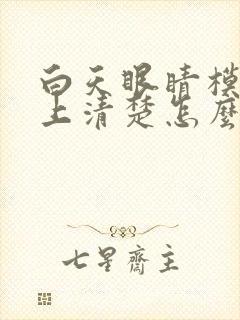 白天眼睛模
上清楚怎麼
七星齋主